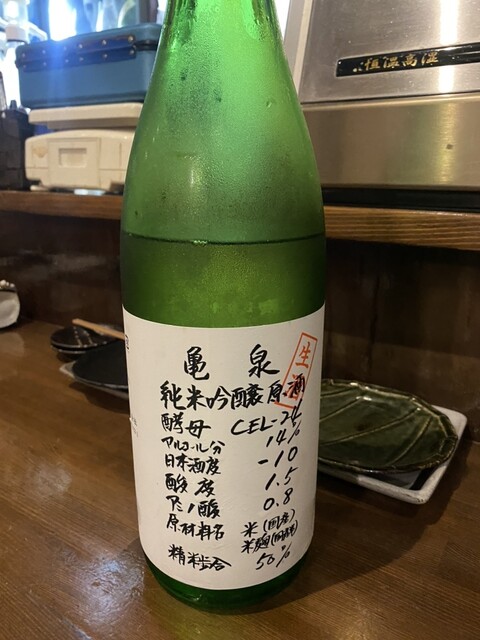 恒温高湿
亀泉
生酒
純米吟醸原酒
酵母 CEL-24
アルコール分 14%
日本酒度 -10
酸度 1.5
アミノ酸 0.8
原材料名 米(国産)
米麹(国産米)
精米歩合 50%